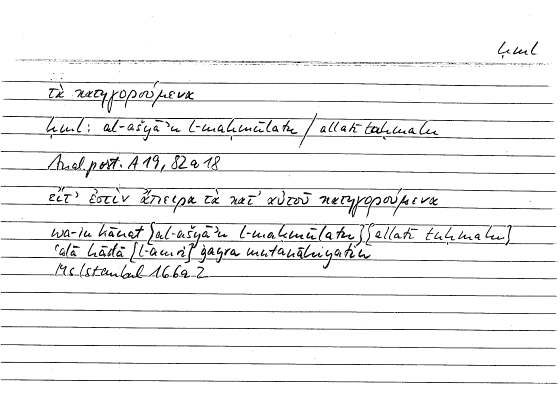 ḥml
τὰ κατηγορούμενα
ḥml: al-ašyāʾu l-maḥmūlatu / allatī tuḥmalu
Anal. post. A 19, 82a18
εἴτ' ἐστὶν ἄπειρα τὰ κατ' αὐτοῦ κατηγορούμενα
wa-in kānat {al-ašyāʾu l-maḥmūlatu} {allatī tuḥmalu}
ʿalā hāḏā [l-amri] ġayra mutanāhiyatin
Ms Istanbul 166a2